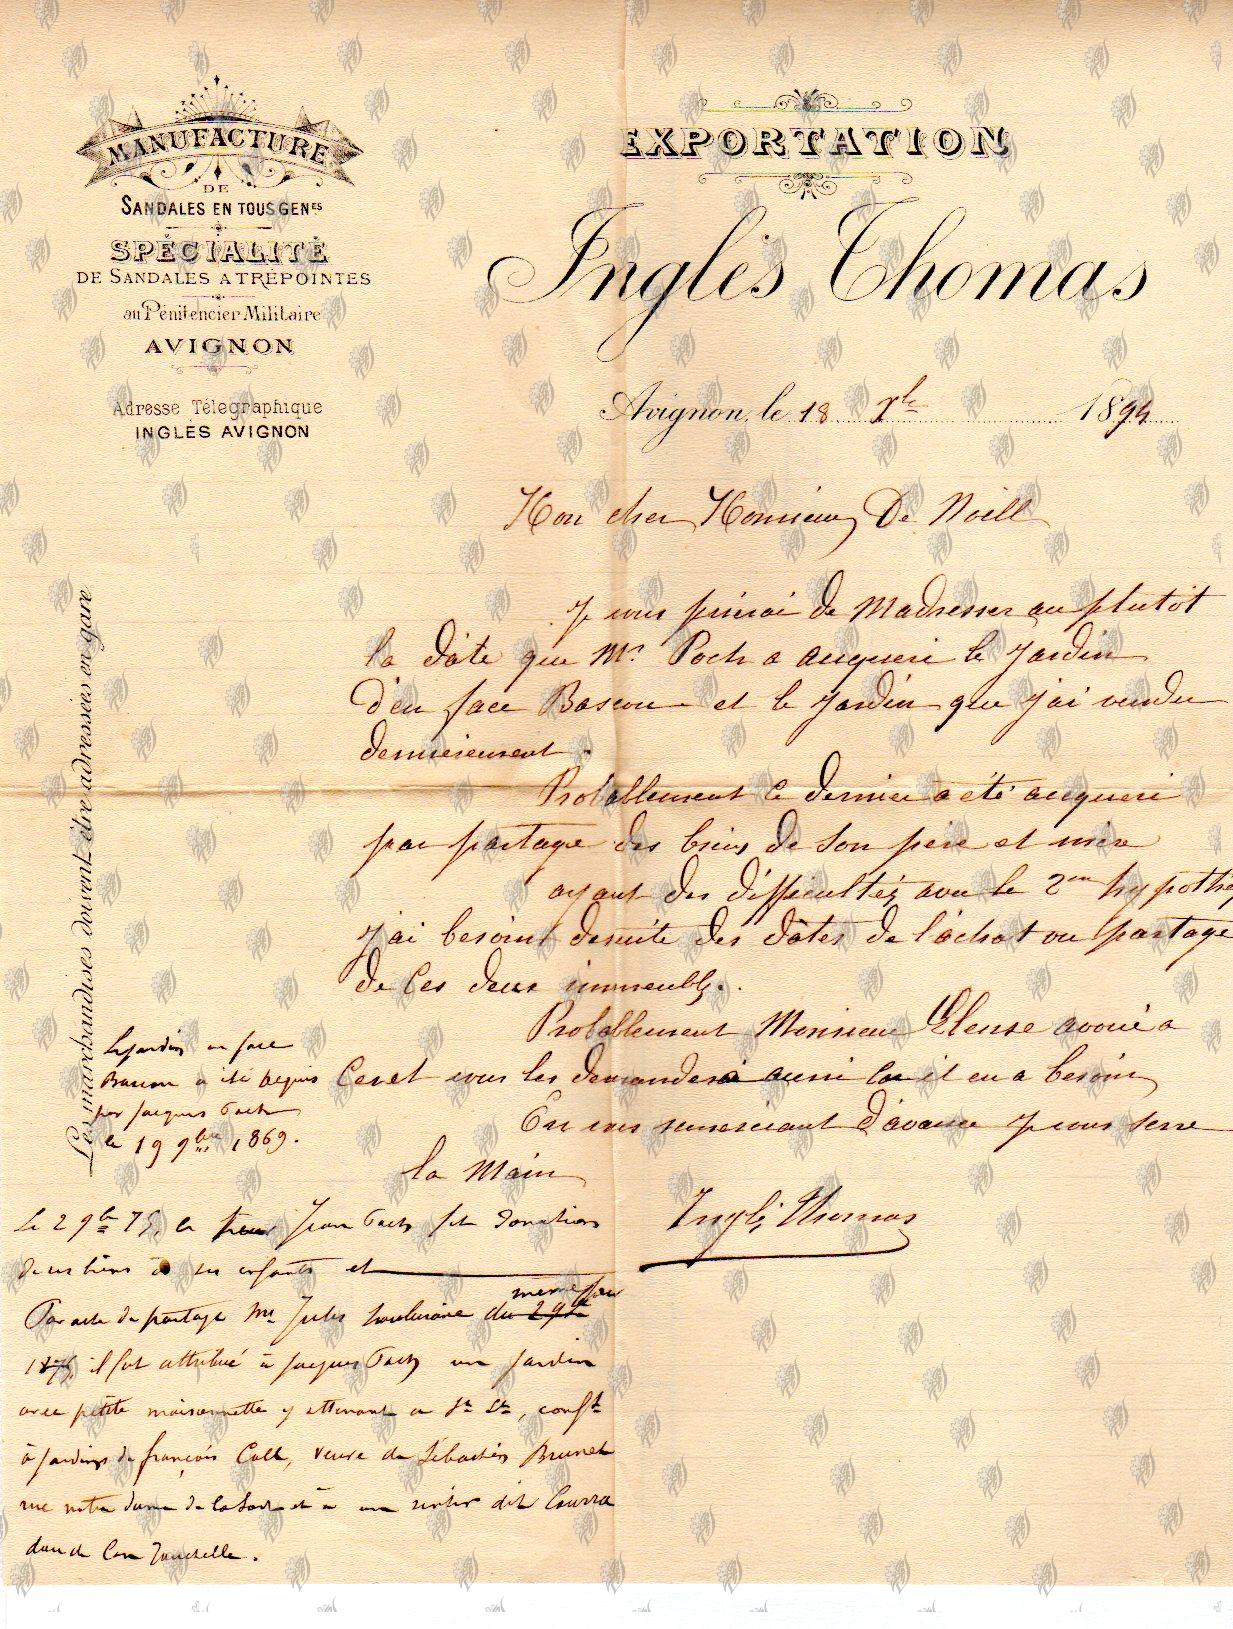 MANUFACTURE
DE
SANDALES EN TOUS GENES
SPÉCIALITÉ
DE SANDALES A TRÉPOINTES
au Pénitencier Militaire
AVIGNON
Adresse Télégraphique
INGLÈS AVIGNON
EXPORTATION
Inglès Thomas
Avignon, le 18 Xbre 1894
Mon cher Monsieur De Noëll
Je vous prierai de Madresser au plutôt
la dâte que Mr. Poch a acqueri le Jardin
d'en face Bascou et le Jardin que j'ai vendu
dernierement.
Probablement ce dernier a été acqueri
par partage des biens de son père et mère
ayant des difficultés avec le 2me hypothé
J'ai besoint desuite des dâtes de l'achat ou partage
de Ces deux immeubles.
Probablement Monsieur Eleuse avoué a
Ceret vous les demandera aussi car il en a besoin
En vous remerciant d'avance Je vous serre
la Main
Inglès Thomas
Les marchandises doivent être adressées en gare
Le jardin en face
Bascou a été acquis
par Jacques Poch
le 19 9bre 1869.
Le 2 9bre 75, le Jean Poch fit donation
de ses biens à ses enfants et
Par acte de partage Me Jules du 2 9bre même jour
1875, il fut attribué à Jacques Poch un jardin
avec petite maisonnette y attenant conft
à jardins de françois Coll, veuve de Sébastien Brunet
rue notre dame de la et à un sentier dit